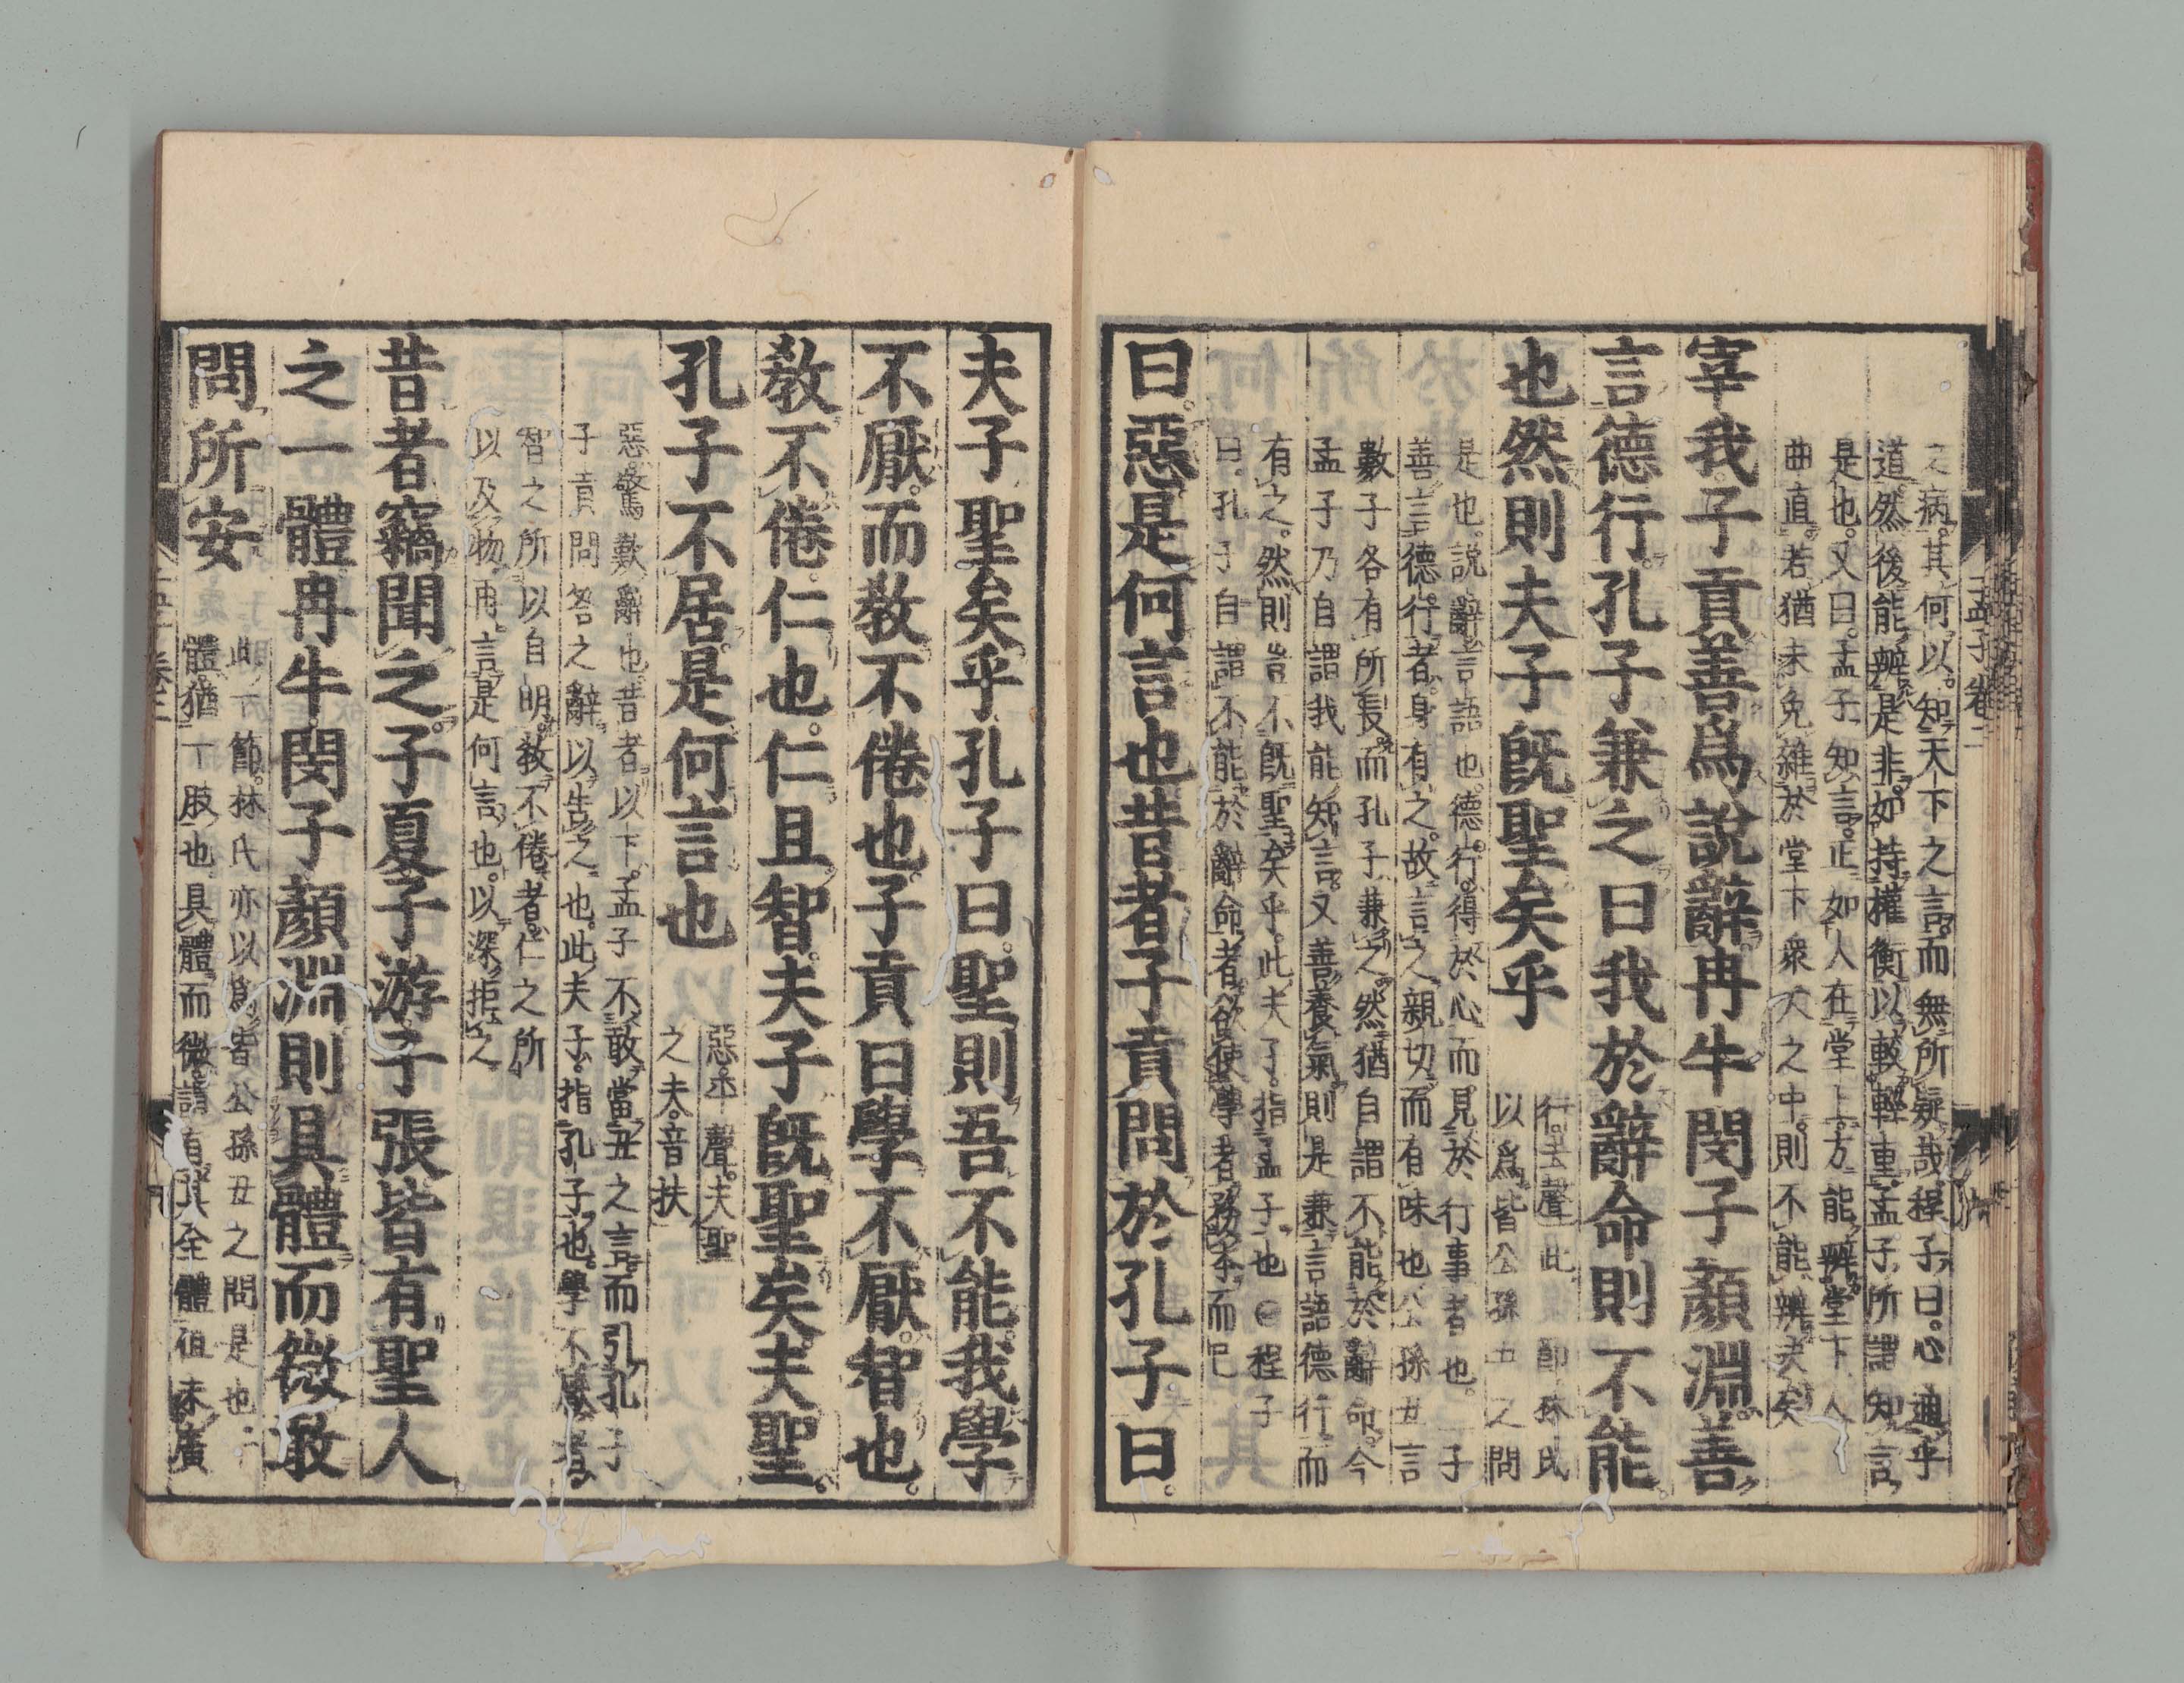 之病。其何以知天下之言。而無所疑哉。程子曰。心通乎
道。然後能辨是非。如持權衡以較輕重。孟子所謂知言
是也。又曰。孟子知言。正如人在堂上。方能辨堂下人
曲直。若猶未免雜於堂下衆人之中。則不能辨決矣
宰我子貢善爲說辭。冉牛閔子顏淵。善
言德行。孔子兼之曰我於辭命則不能
也然則夫子既聖矣乎
行去聲此一節林氏
以爲皆公孫丑之問
是也。說辭言語也。德行。得於心而見於行事者也。三子
善言德行者。身有之。故言之親切而有味也。公孫丑言
數子各有所長。而孔子兼之。然猶自謂不能於辭命。今
孟子乃自謂我能知言。又善養氣。則是兼言語德行而
有之。然則豈不既聖矣乎。此夫子。指孟子也○程子
曰。孔子自謂不能於辭命者。欲使學者務本而已
曰。惡是何言也昔者子貢問於孔子曰。
夫子聖矣乎孔子曰。聖則吾不能。我學
不厭。而教不倦也。子貢曰學不厭。智也。
教不倦。仁也。仁且智。夫子既聖矣夫聖。
孔子不居。是何言也
惡。平聲。夫聖
之夫。音扶
惡。驚歎辭也。昔者以下。孟子不敢當丑之言。而引孔子
子貢問答之辭。以告之也。此夫子。指孔子也。學不厭者
智之所以自明。教不倦者。仁之所
以及物。再言是何言也。以深拒之
昔者竊聞之。子夏子游子張皆有聖人
之一體冉牛閔子顏淵則具體而微敢
問所安
此一節。林氏亦以爲皆公孫丑之問是也一
體猶一肢也具體而微。謂有其全體但未廣
孟子卷二